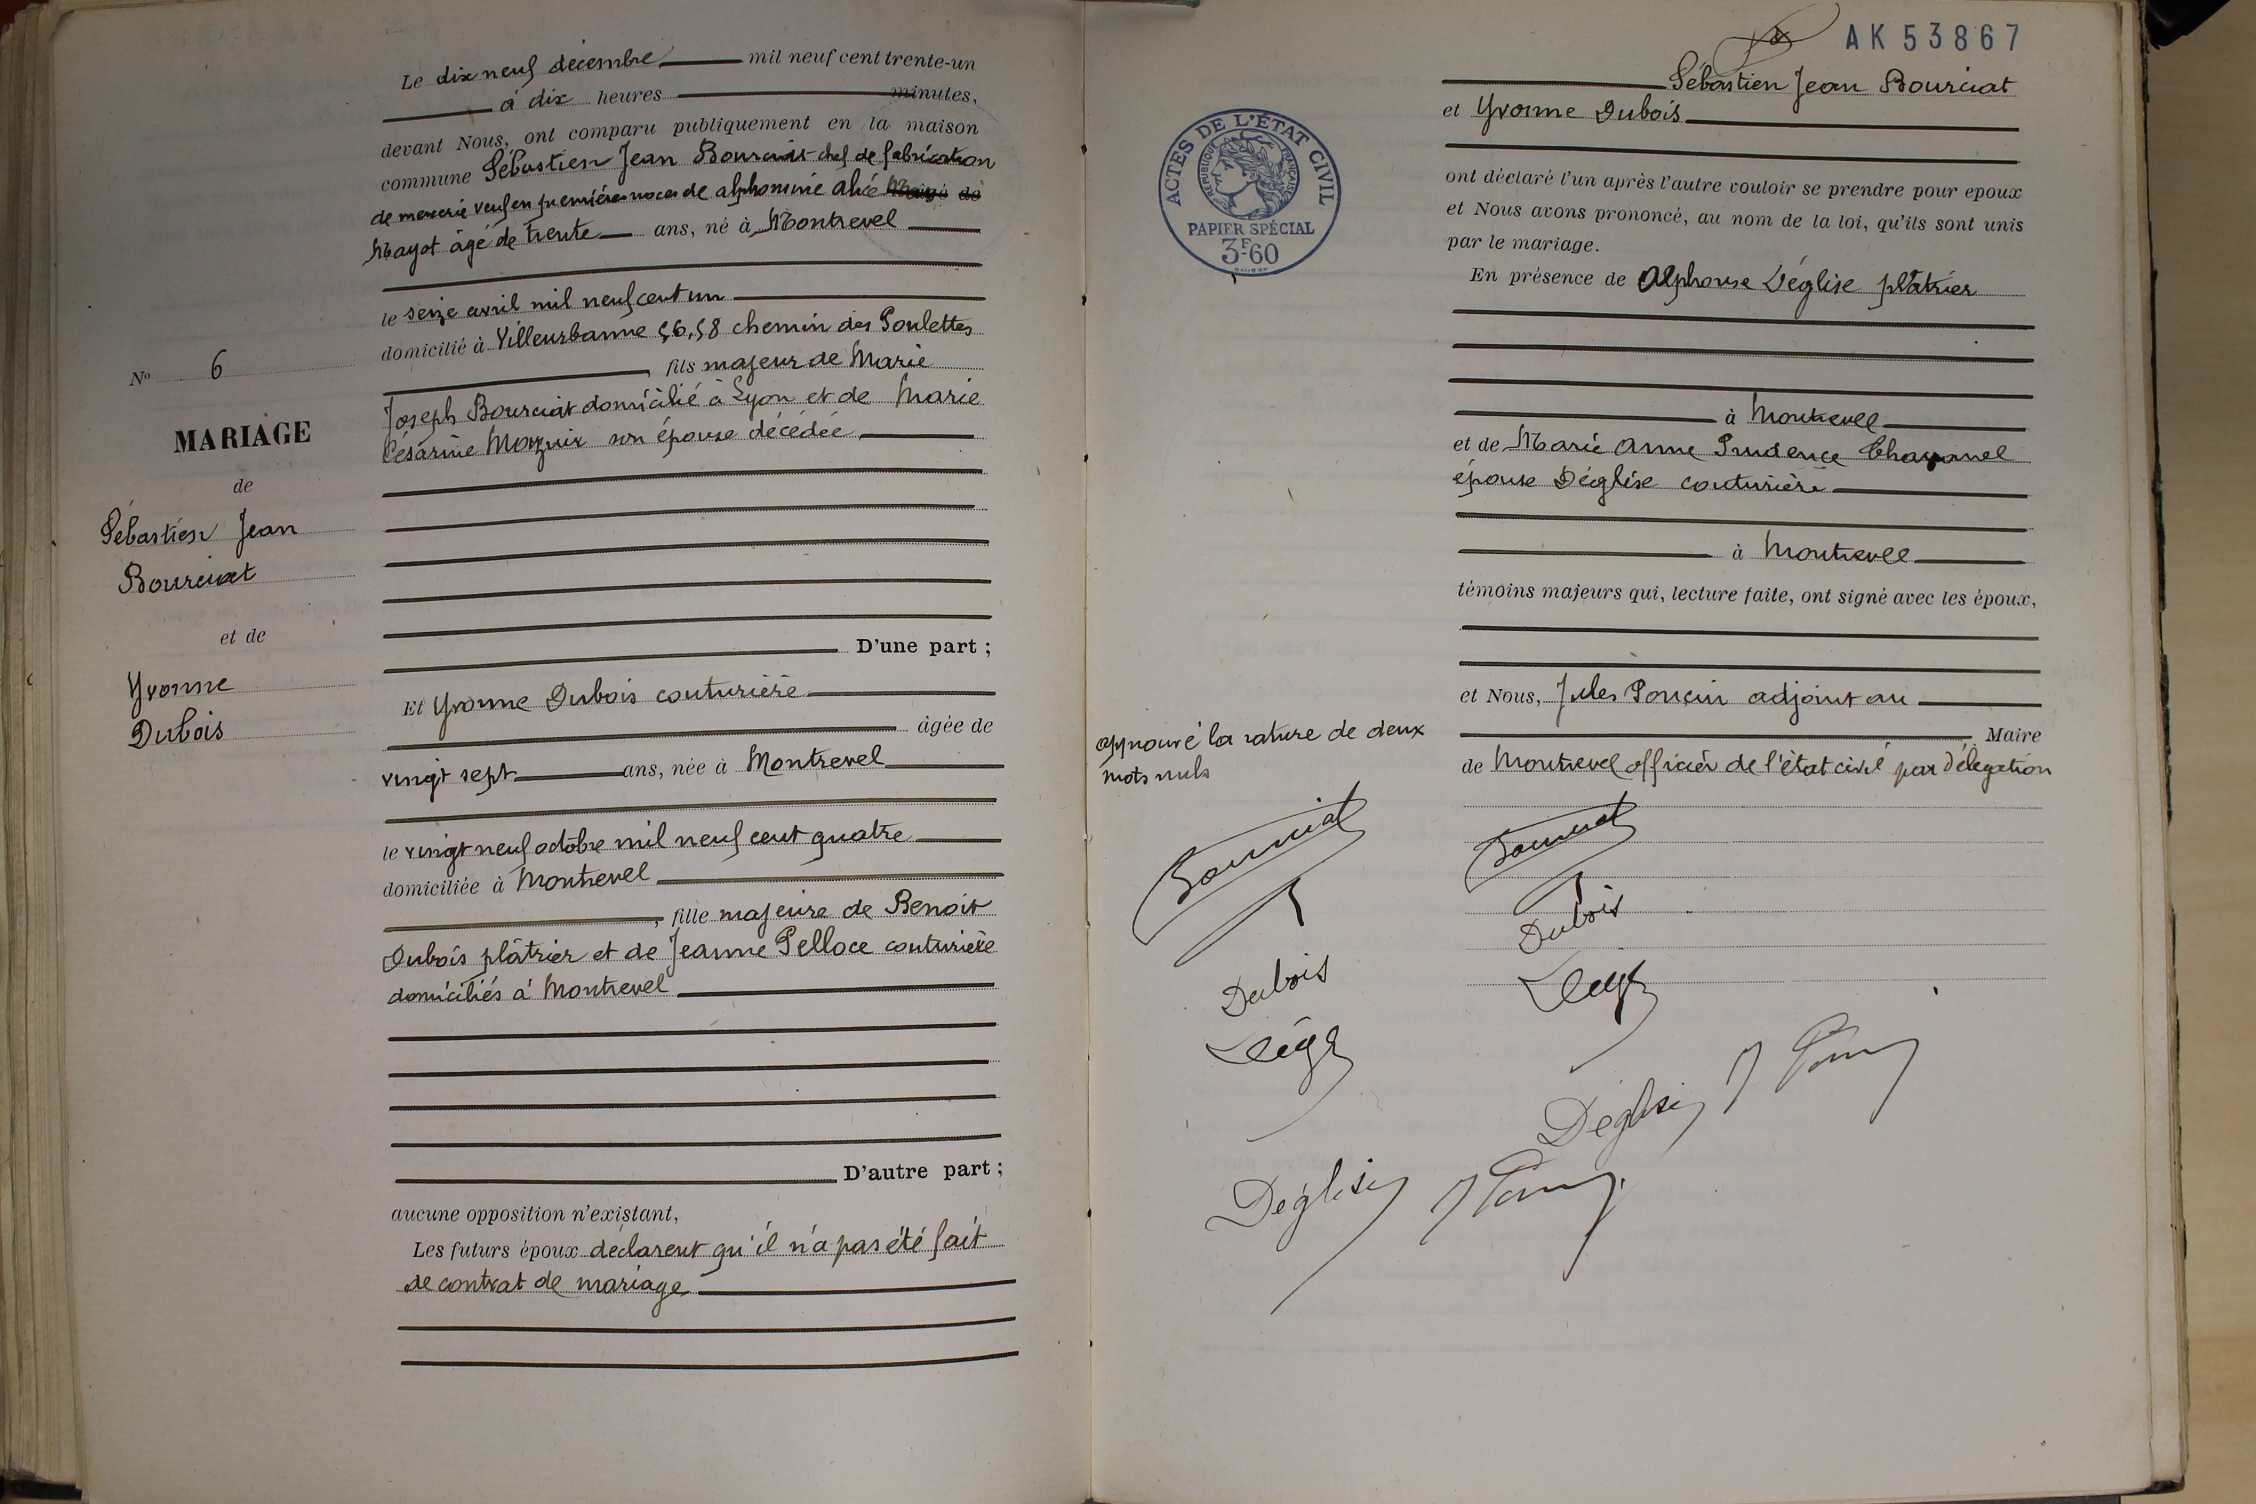 Le dix neuf décembre mil neuf cent trente-un
à dix heures minutes,
devant Nous, ont comparu publiquement en la maison
commune Sébastien Jean Bourciat chef de fabrication
de mercerie veuf en premières noces de alphonsine alice
Mayot âgé de trente ans, né à Montrevel
le seize avril mil neuf cent un
domicilié à Villeurbanne 56,58 chemin des Poulettes
fils majeur de Marie
Joseph Bourciat domicilié à Lyon et de Marie
Césarine son épouse décédée
D'une part ;
No 6
MARIAGE
de
Sébastien Jean
Bourciat
et de
Yvonne
Dubois
Et Yvonne Dubois couturière
âgée de
vingt sept ans, née à Montrevel
le vingt neuf octobre mil neuf cent quatre
domiciliée à Montrevel
, fille majeure de Benoit
Dubois plâtrier et de Jeanne Pelloce couturière
domiciliés à Montrevel
D'autre part ;
aucune opposition n'existant,
Les futurs époux déclarent qu'il n'a pas été fait
de contrat de mariage
AK53867
ACTES DE L'ÉTAT CIVIL
RÉPUBLIQUE FRANÇAISE
PAPIER SPÉCIAL
3F.60
Sébastien Jean Bourciat
et Yvonne Dubois
ont déclaré l'un après l'autre vouloir se prendre pour epoux
et Nous avons prononcé, au nom de la loi, qu'ils sont unis
par le mariage.
En présence de Alphonse Déglise plâtrier
à Montrevel
et de Marie Anne Prudence Chavanel
épouse Déglise couturière
à Montrevel
témoins majeurs qui, lecture faite, ont signé avec les époux,
et Nous, Jules Poncin adjoint au
Maire
de Montrevel officier de l'état civil par délégation
approuvé la rature de deux
mots nuls
Bourciat
Bourciat
Dubois
Dubois
Déglise
Déglise